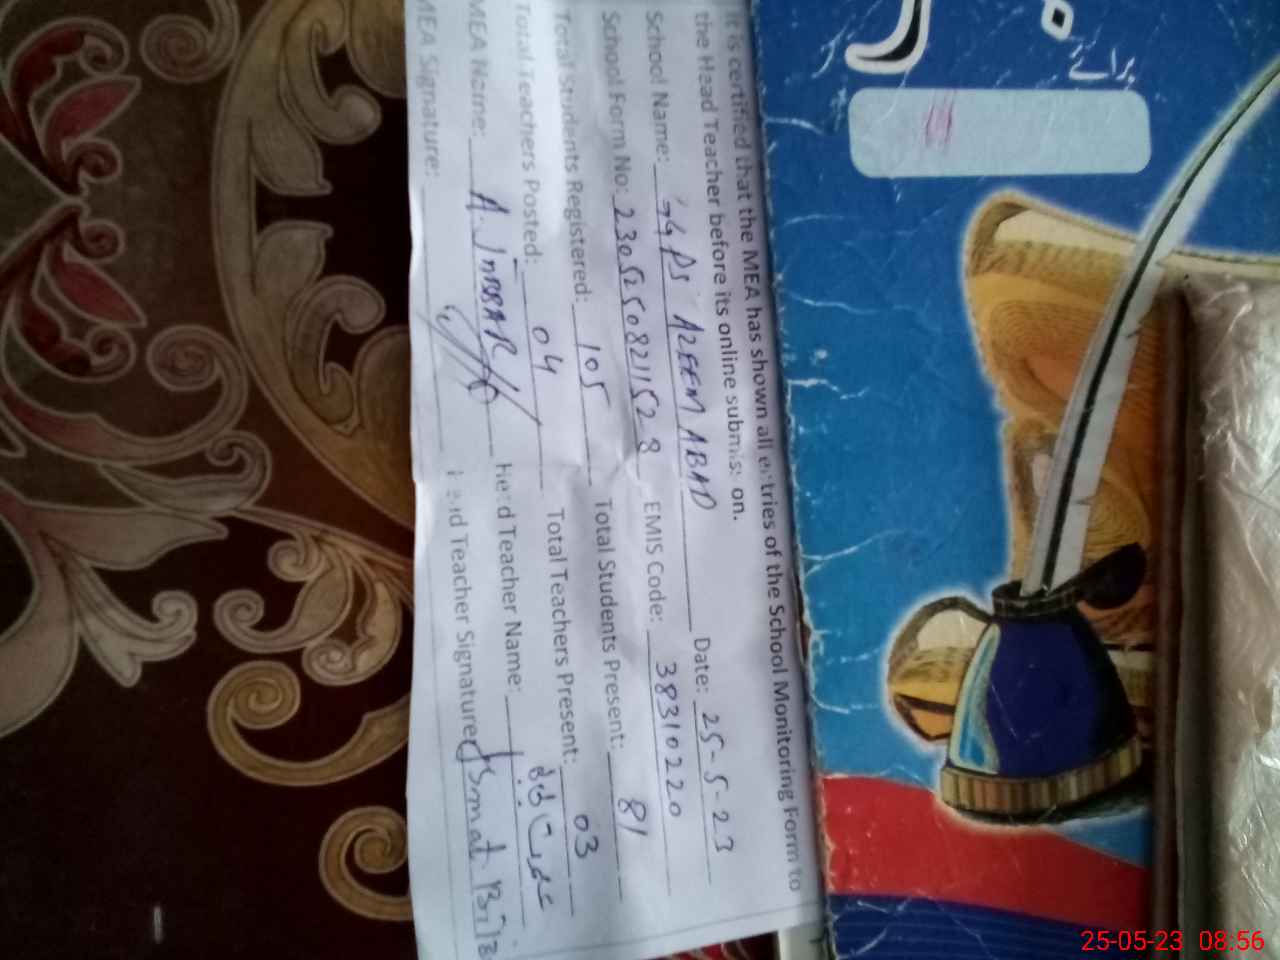 It is certified that the MEA has shown all entries of the School Monitoring Form to
the Head Teacher before its online submission.
School Name: GGPS AZEEM ABAD Date: 25-5-23
School Form No: 23052508211528 EMIS Code: 38310220
Total Students Registered: 105 Total Students Present: 81
Total Teachers Posted: 04 Total Teachers Present: 03
MEA Name: A. JABBAR Head Teacher Name:
MEA Signature: Head Teacher Signature: Ismat Bibi
برائے
25-05-23 08:56